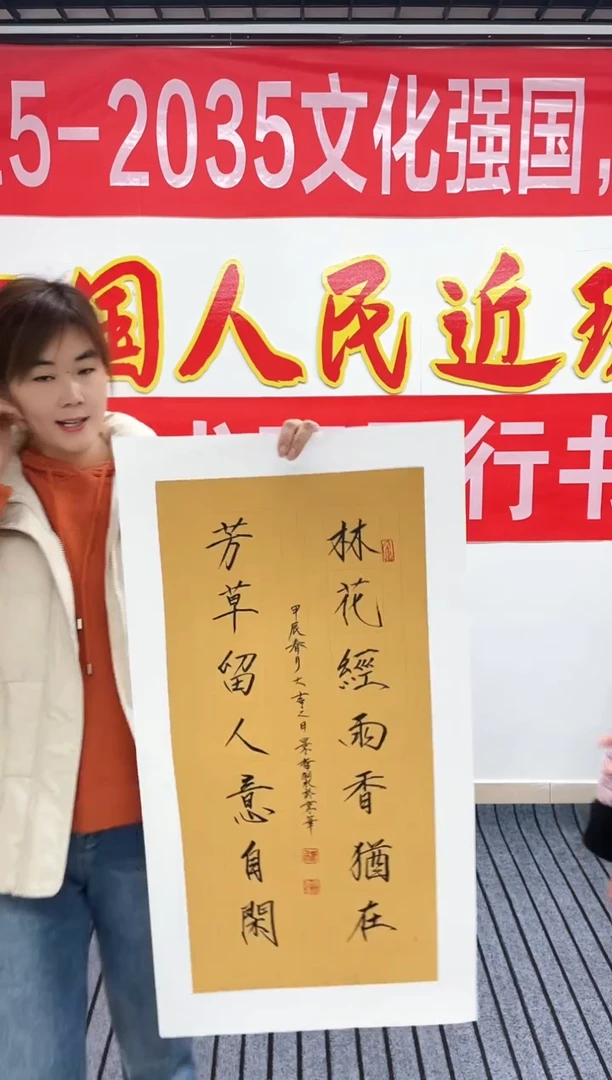 5-2035文化强国，
国人民近现
行书
林花經雨香猶在
芳草留人意自閑
甲辰春月大寒之日景春製於京華